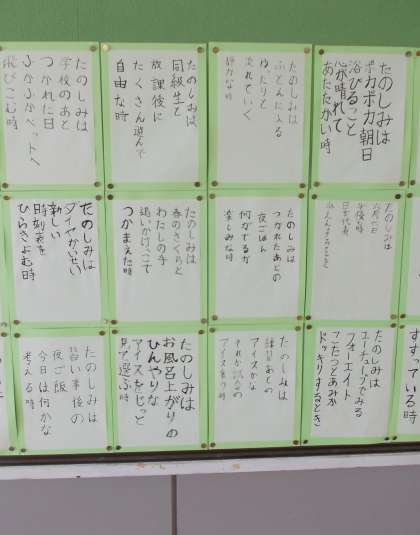 たのしみは
ポカポカ朝日
浴びること
心が晴れて
あたたかい時
たのしみは
ふとんに入る
ゆったりと
流れていく
静かな時
たのしみは
同級生と
放課後に
たくさん遊んで
自由な時
たのしみは
学校のあと
つかれた日
ふかふかベットへ
飛びこむ時
たのしみは
日本代表
たのしみは
つかれたあとの
夜ごはん
何がでるか
楽しみな時
たのしみは
春のさくらと
わたしの手
追いかけっこで
つかまえた時
たのしみは
ダイヤかいせい
新しい
時刻表を
ひらきよむ時
すすっている時
たのしみは
ユーチューブでみる
フォーエイト
こたつとあみが
ドッキリするとき
たのしみは
練習あとの
アイスかな
それか試合の
アイスを買う時
たのしみは
お風呂上がりの
ひんやりな
アイスをじっと
見て選ぶ時
たのしみは
習い事後の
夜ご飯
今日は何かな
考える時